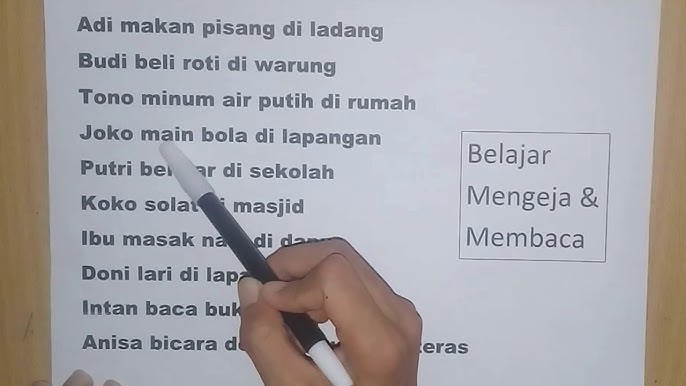 Adi makan pisang di ladang
Budi beli roti di warung
Tono minum air putih di rumah
Joko main bola di lapangan
Putri di sekolah
Koko solat masjid
Ibu masak di
Doni lari di
Intan baca
Anisa bicara teras
Belajar
Mengeja &
Membaca